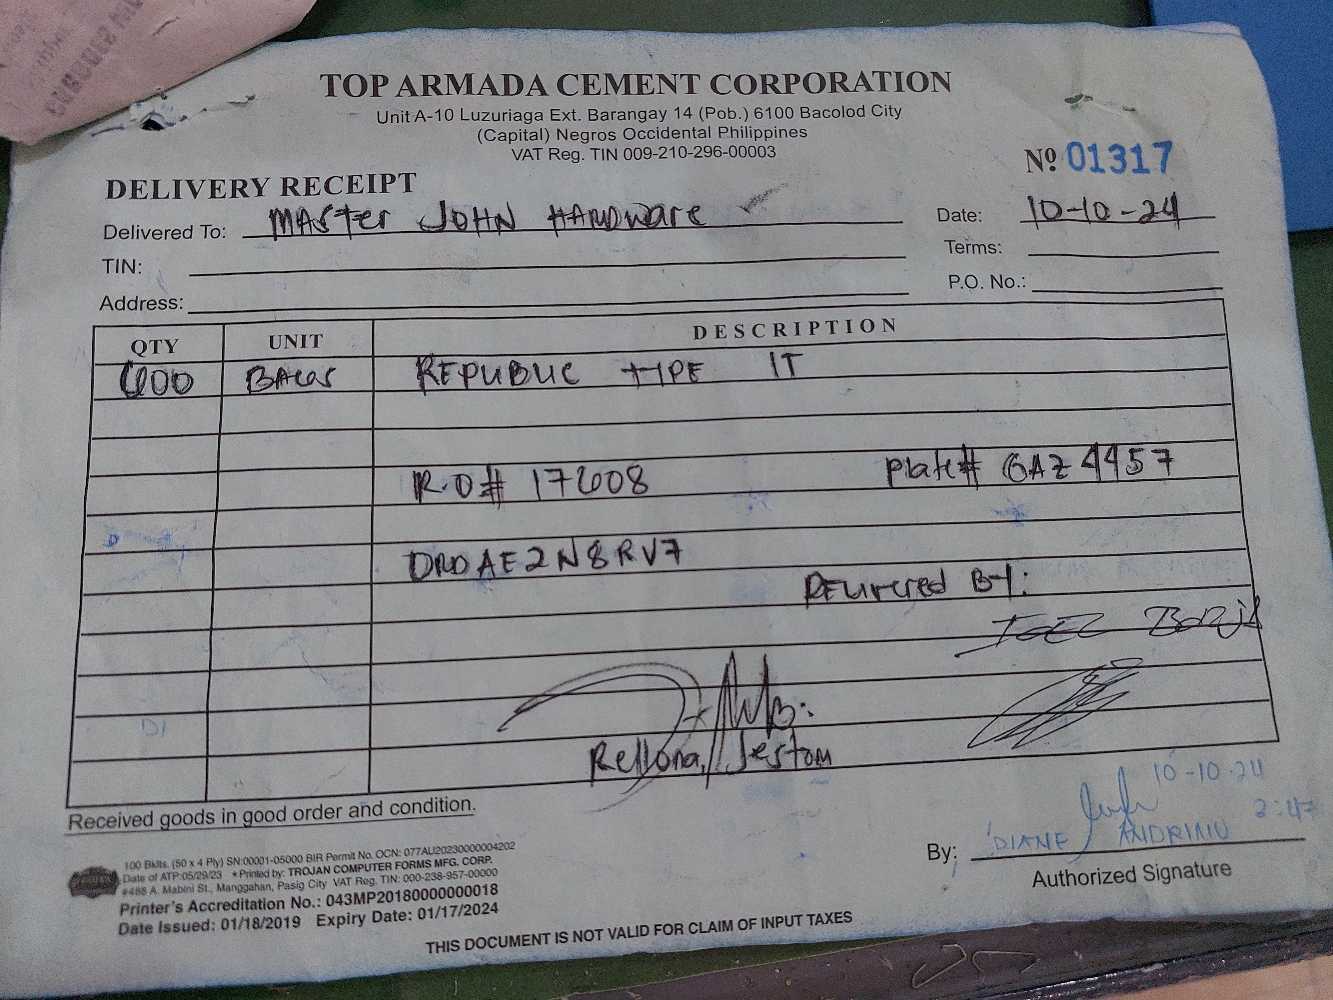 TOP ARMADA CEMENT CORPORATION
Unit A-10 Luzuriaga Ext. Barangay 14 (Pob.) 6100 Bacolod City
(Capital) Negros Occidental Philippines
VAT Reg. TIN 009-210-296-00003
Nº 01317
DELIVERY RECEIPT
Delivered To: MASTER JOHN HARDWARE
Date: 10-10-24
TIN:
Terms:
Address:
P.O. No.:
QTY UNIT DESCRIPTION
600 BAGS REPUBLIC TYPE IT
R.O# 17608 Plate# GAZ 4457
DRDAE2N8RV7
DELIVERED BY:
Rellona, Jestom
10-10-24
2:47
Received goods in good order and condition.
By: DIANE ANDRINO
Authorized Signature
100 Bklts. (50 x 4 Ply) SN:00001-05000 BIR Permit No. OCN: 077AU20230000004202
Date of ATP:05/29/23 *Printed by: TROJAN COMPUTER FORMS MFG. CORP.
#488 A. Mabini St., Manggahan, Pasig City VAT Reg. TIN: 000-238-957-00000
Printer's Accreditation No.: 043MP20180000000018
Date Issued: 01/18/2019 Expiry Date: 01/17/2024
THIS DOCUMENT IS NOT VALID FOR CLAIM OF INPUT TAXES